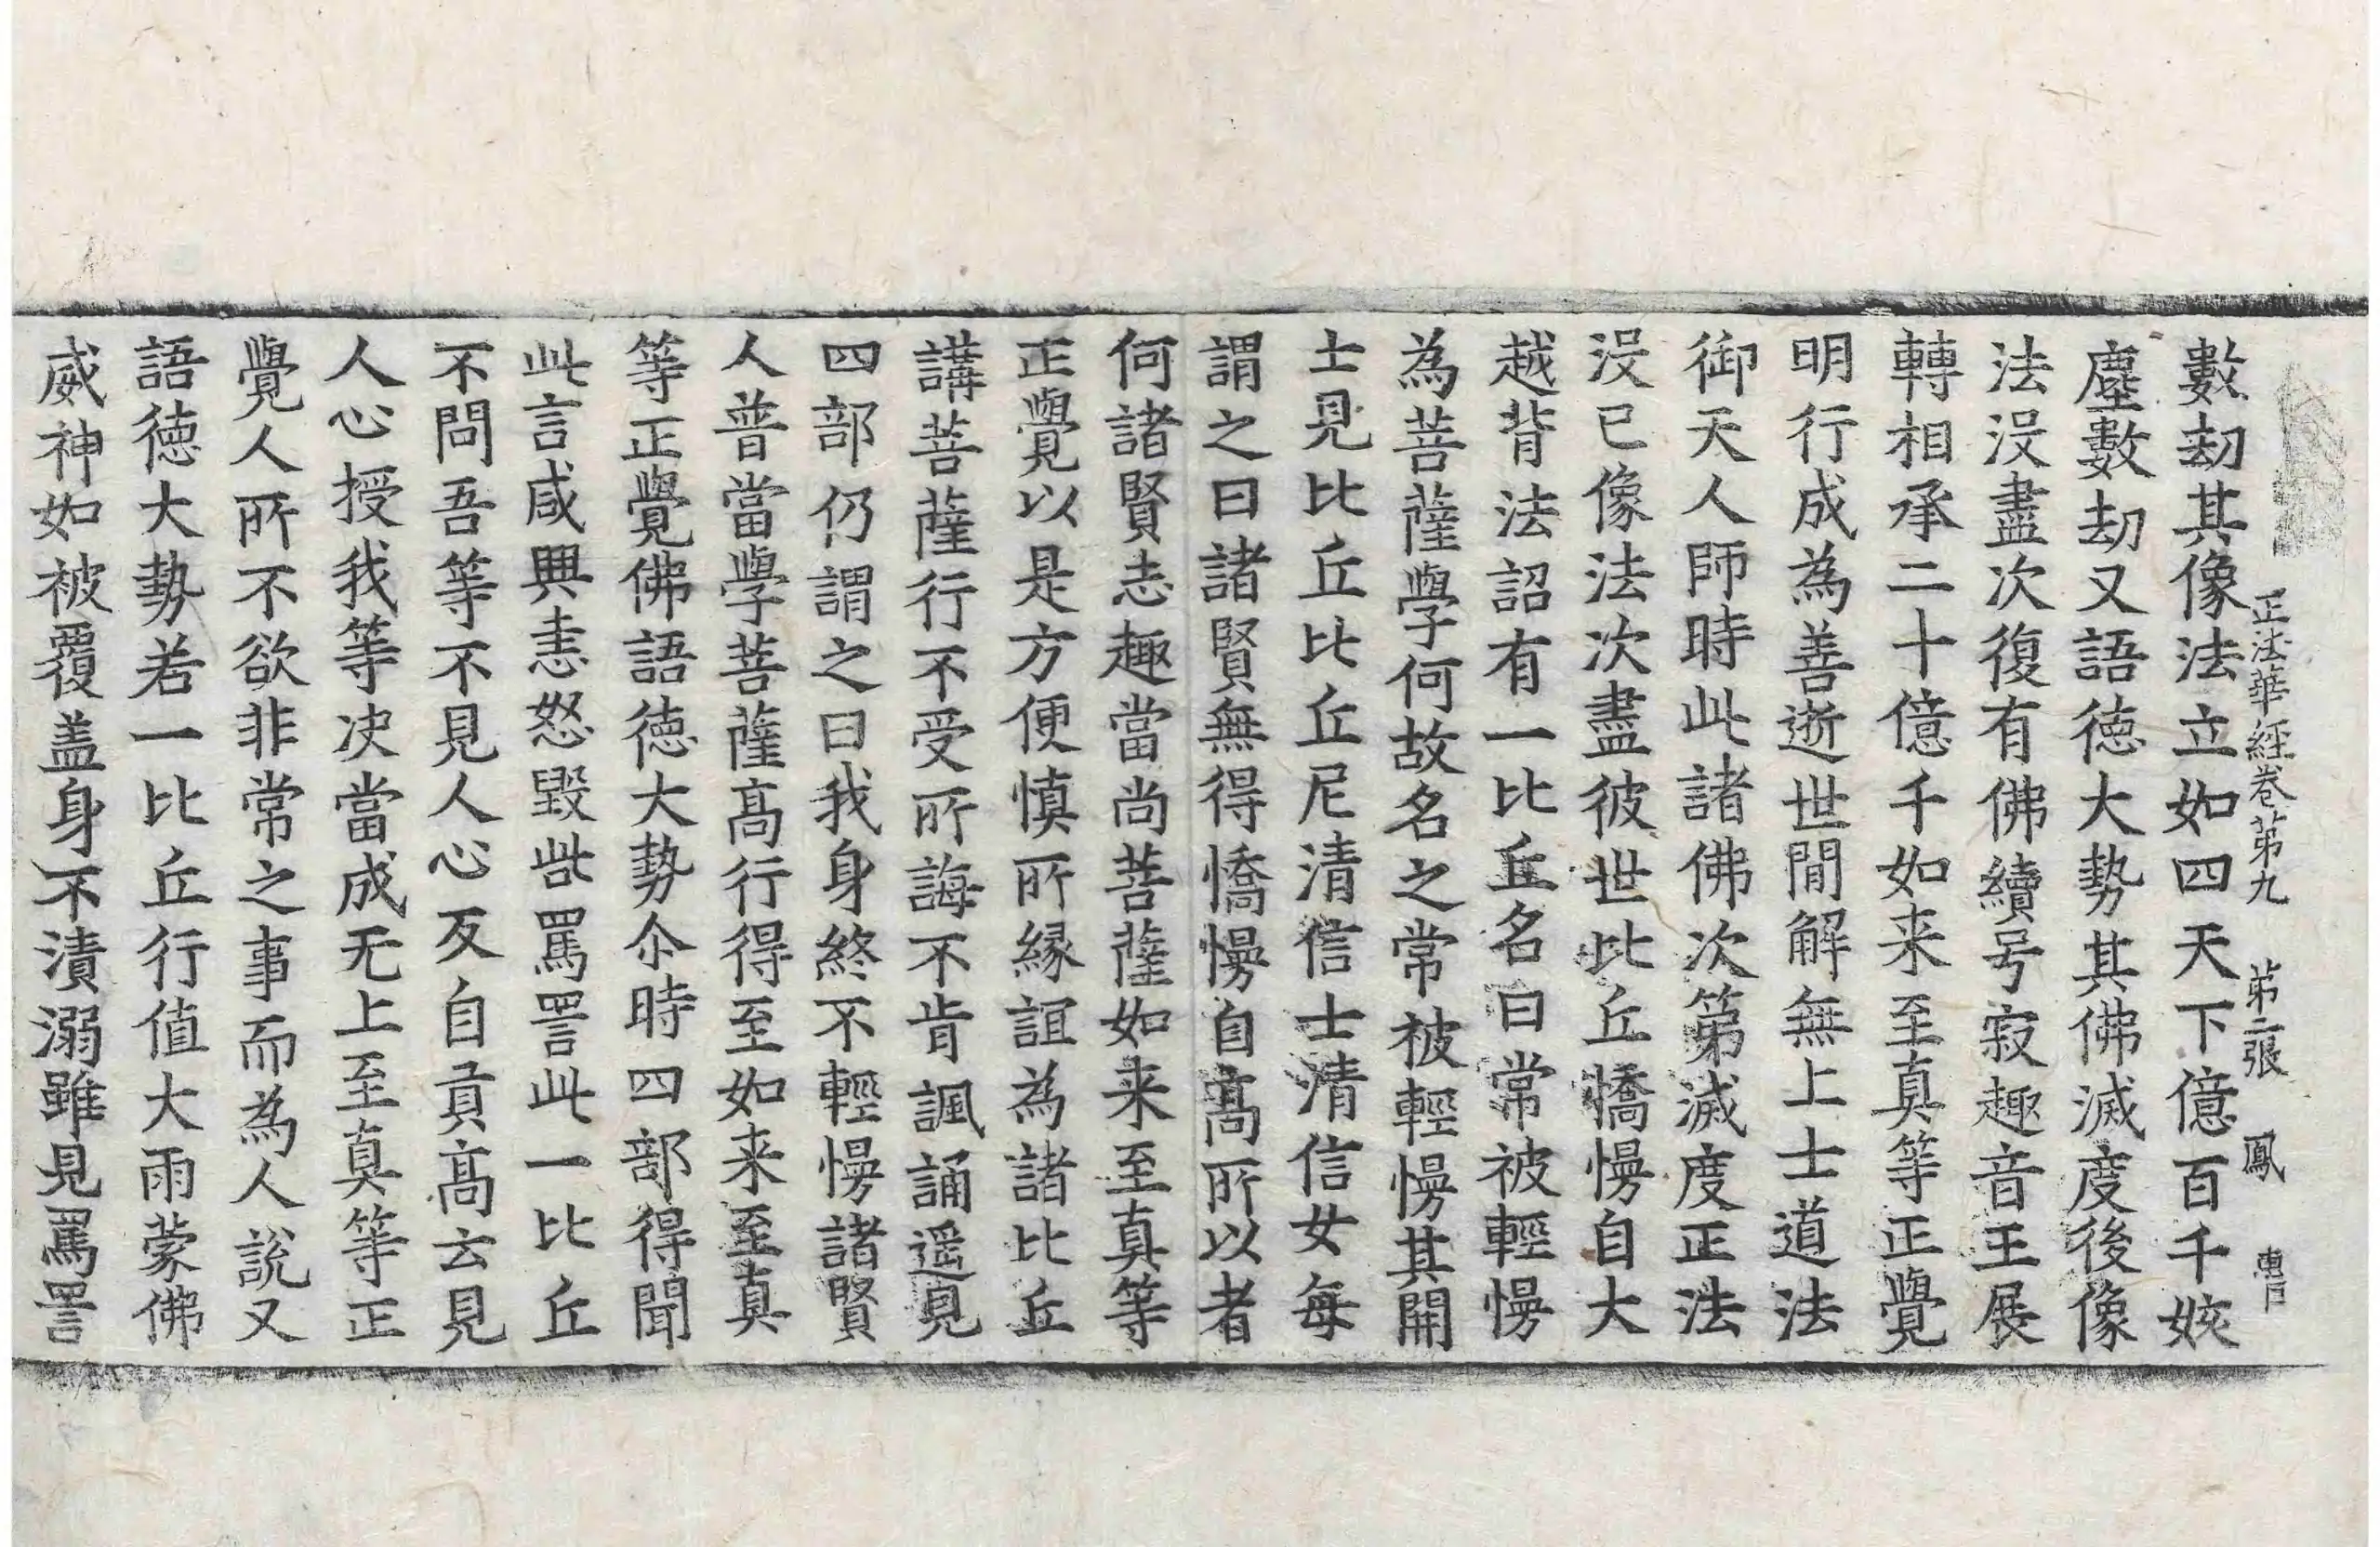 正法華經卷第九 第二張 鳳
數劫其像法立如四天下億百千姟
塵數劫又語德大勢其佛滅度後像
法沒盡次復有佛續号寂趣音王展
轉相承二十億千如来至真等正覺
明行成為善逝世閒解無上士道法
御天人師時此諸佛次第滅度正法
沒已像法次盡彼世比丘憍慢自大
越背法詔有一比丘名曰常被輕慢
為菩薩學何故名之常被輕慢其開
士見比丘比丘尼清信士清信女每
謂之曰諸賢無得憍慢自高所以者
何諸賢志趣當尚菩薩如来至真等
正覺以是方便慎所緣誼為諸比丘
講菩薩行不受所誨不肯諷誦遥見
四部仍謂之曰我身終不輕慢諸賢
人普當學菩薩高行得至如来至真
等正覺佛語德大勢尒時四部得聞
此言咸興恚怒毀呰罵詈此一比丘
不問吾等不見人心反自貢高云見
人心授我等决當成无上至真等正
覺人所不欲非常之事而為人說又
語德大勢若一比丘行值大雨蒙佛
威神如被覆盖身不漬溺雖見罵詈